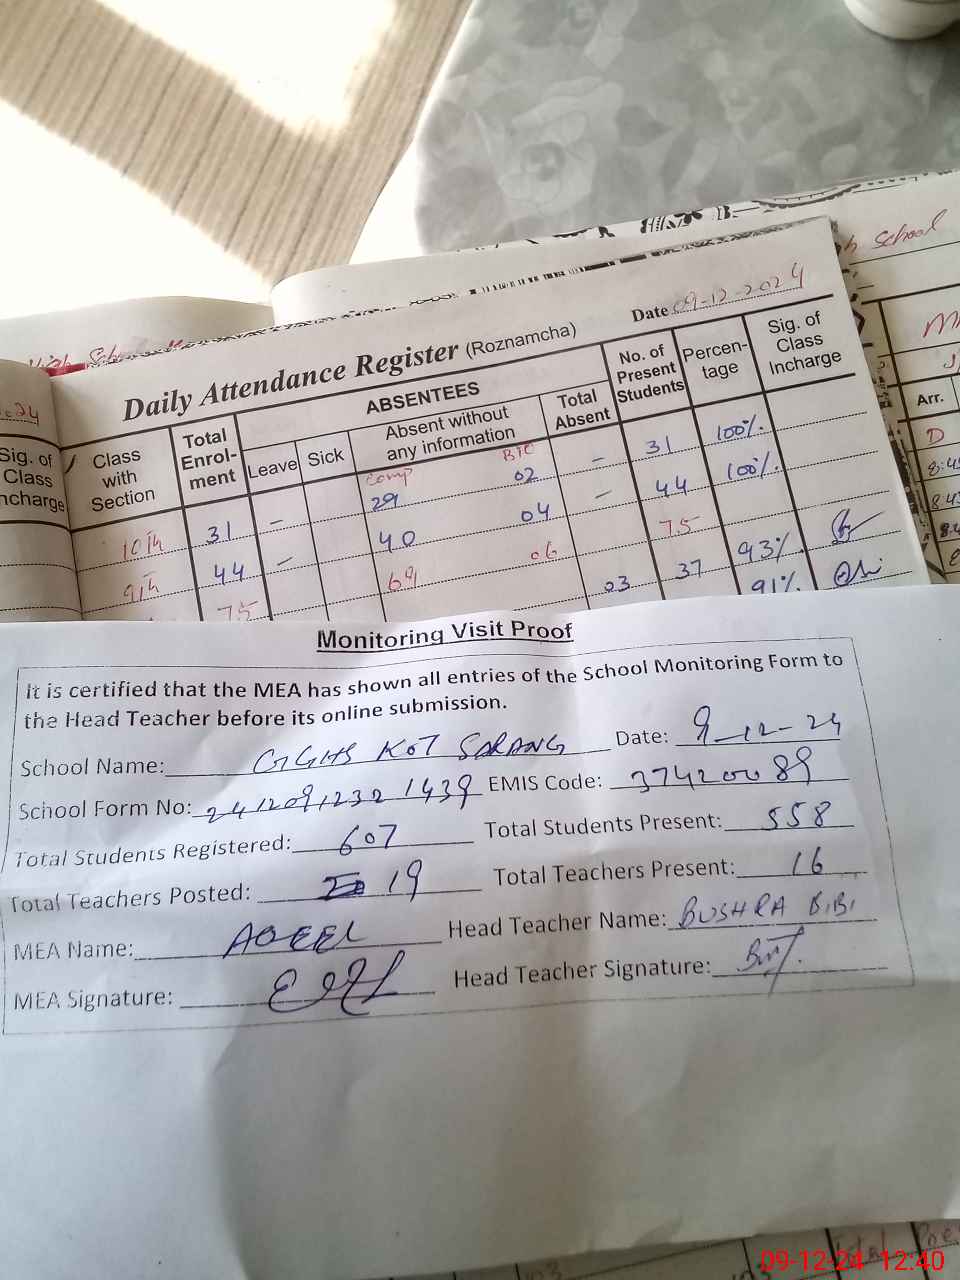 School
High School
Date 09-12-2024
Daily Attendance Register (Roznamcha)
Class with Section
Total Enrol-ment
ABSENTEES
Leave
Sick
Absent without any information
Total Absent
No. of Present Students
Percen-tage
Sig. of Class Incharge
Sig. of Class ncharge
Arr.
D
Comp BIO
10th 31 - 29 02 - 31 100%
9th 44 - 40 04 - 44 100%
75 69 06 75
03 37 93%
91%
Monitoring Visit Proof
It is certified that the MEA has shown all entries of the School Monitoring Form to
the Head Teacher before its online submission.
School Name: GGHS KOT SARANG Date: 9-12-24
School Form No: 2412091232 1439 EMIS Code: 37420089
Total Students Registered: 607 Total Students Present: 558
Total Teachers Posted: 19 Total Teachers Present: 16
MEA Name: AQEEL Head Teacher Name: BUSHRA BIBI
MEA Signature: Head Teacher Signature:
09-12-24 12:40